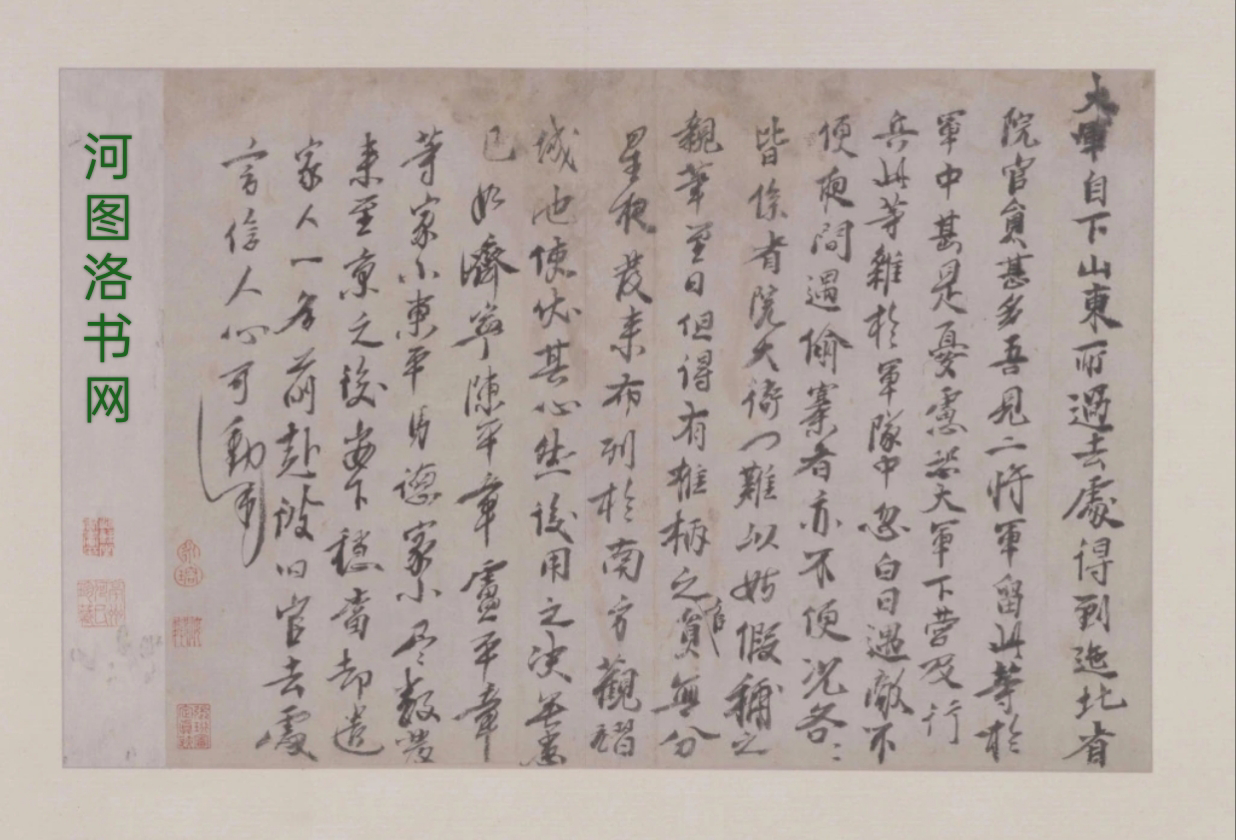 大軍自下山東所過去處得到迤北省
院官員甚多吾見二將軍留此等於
軍中甚是憂慮恐大軍下營及行
兵此等雜於軍隊中忽白日遇敵不
便夜間遇偷寨者亦不便況各〻
皆係省院大衙門難以姑假補之
親筆至日但得有椎柄之員官無分
星夜發來布列於南方觀習
城池使伏其心然後用之決無患
已如濟寧陳平章盧平章
等家小東平馬德家小盡數發
來至京之後安下穩當却遣
家人一名前赴彼旧官去處
言信人心可動
河图洛书网